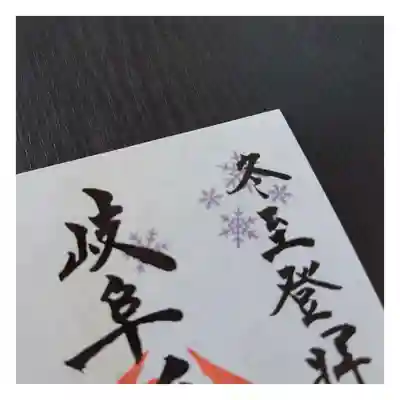 冬至登拝
岐阜